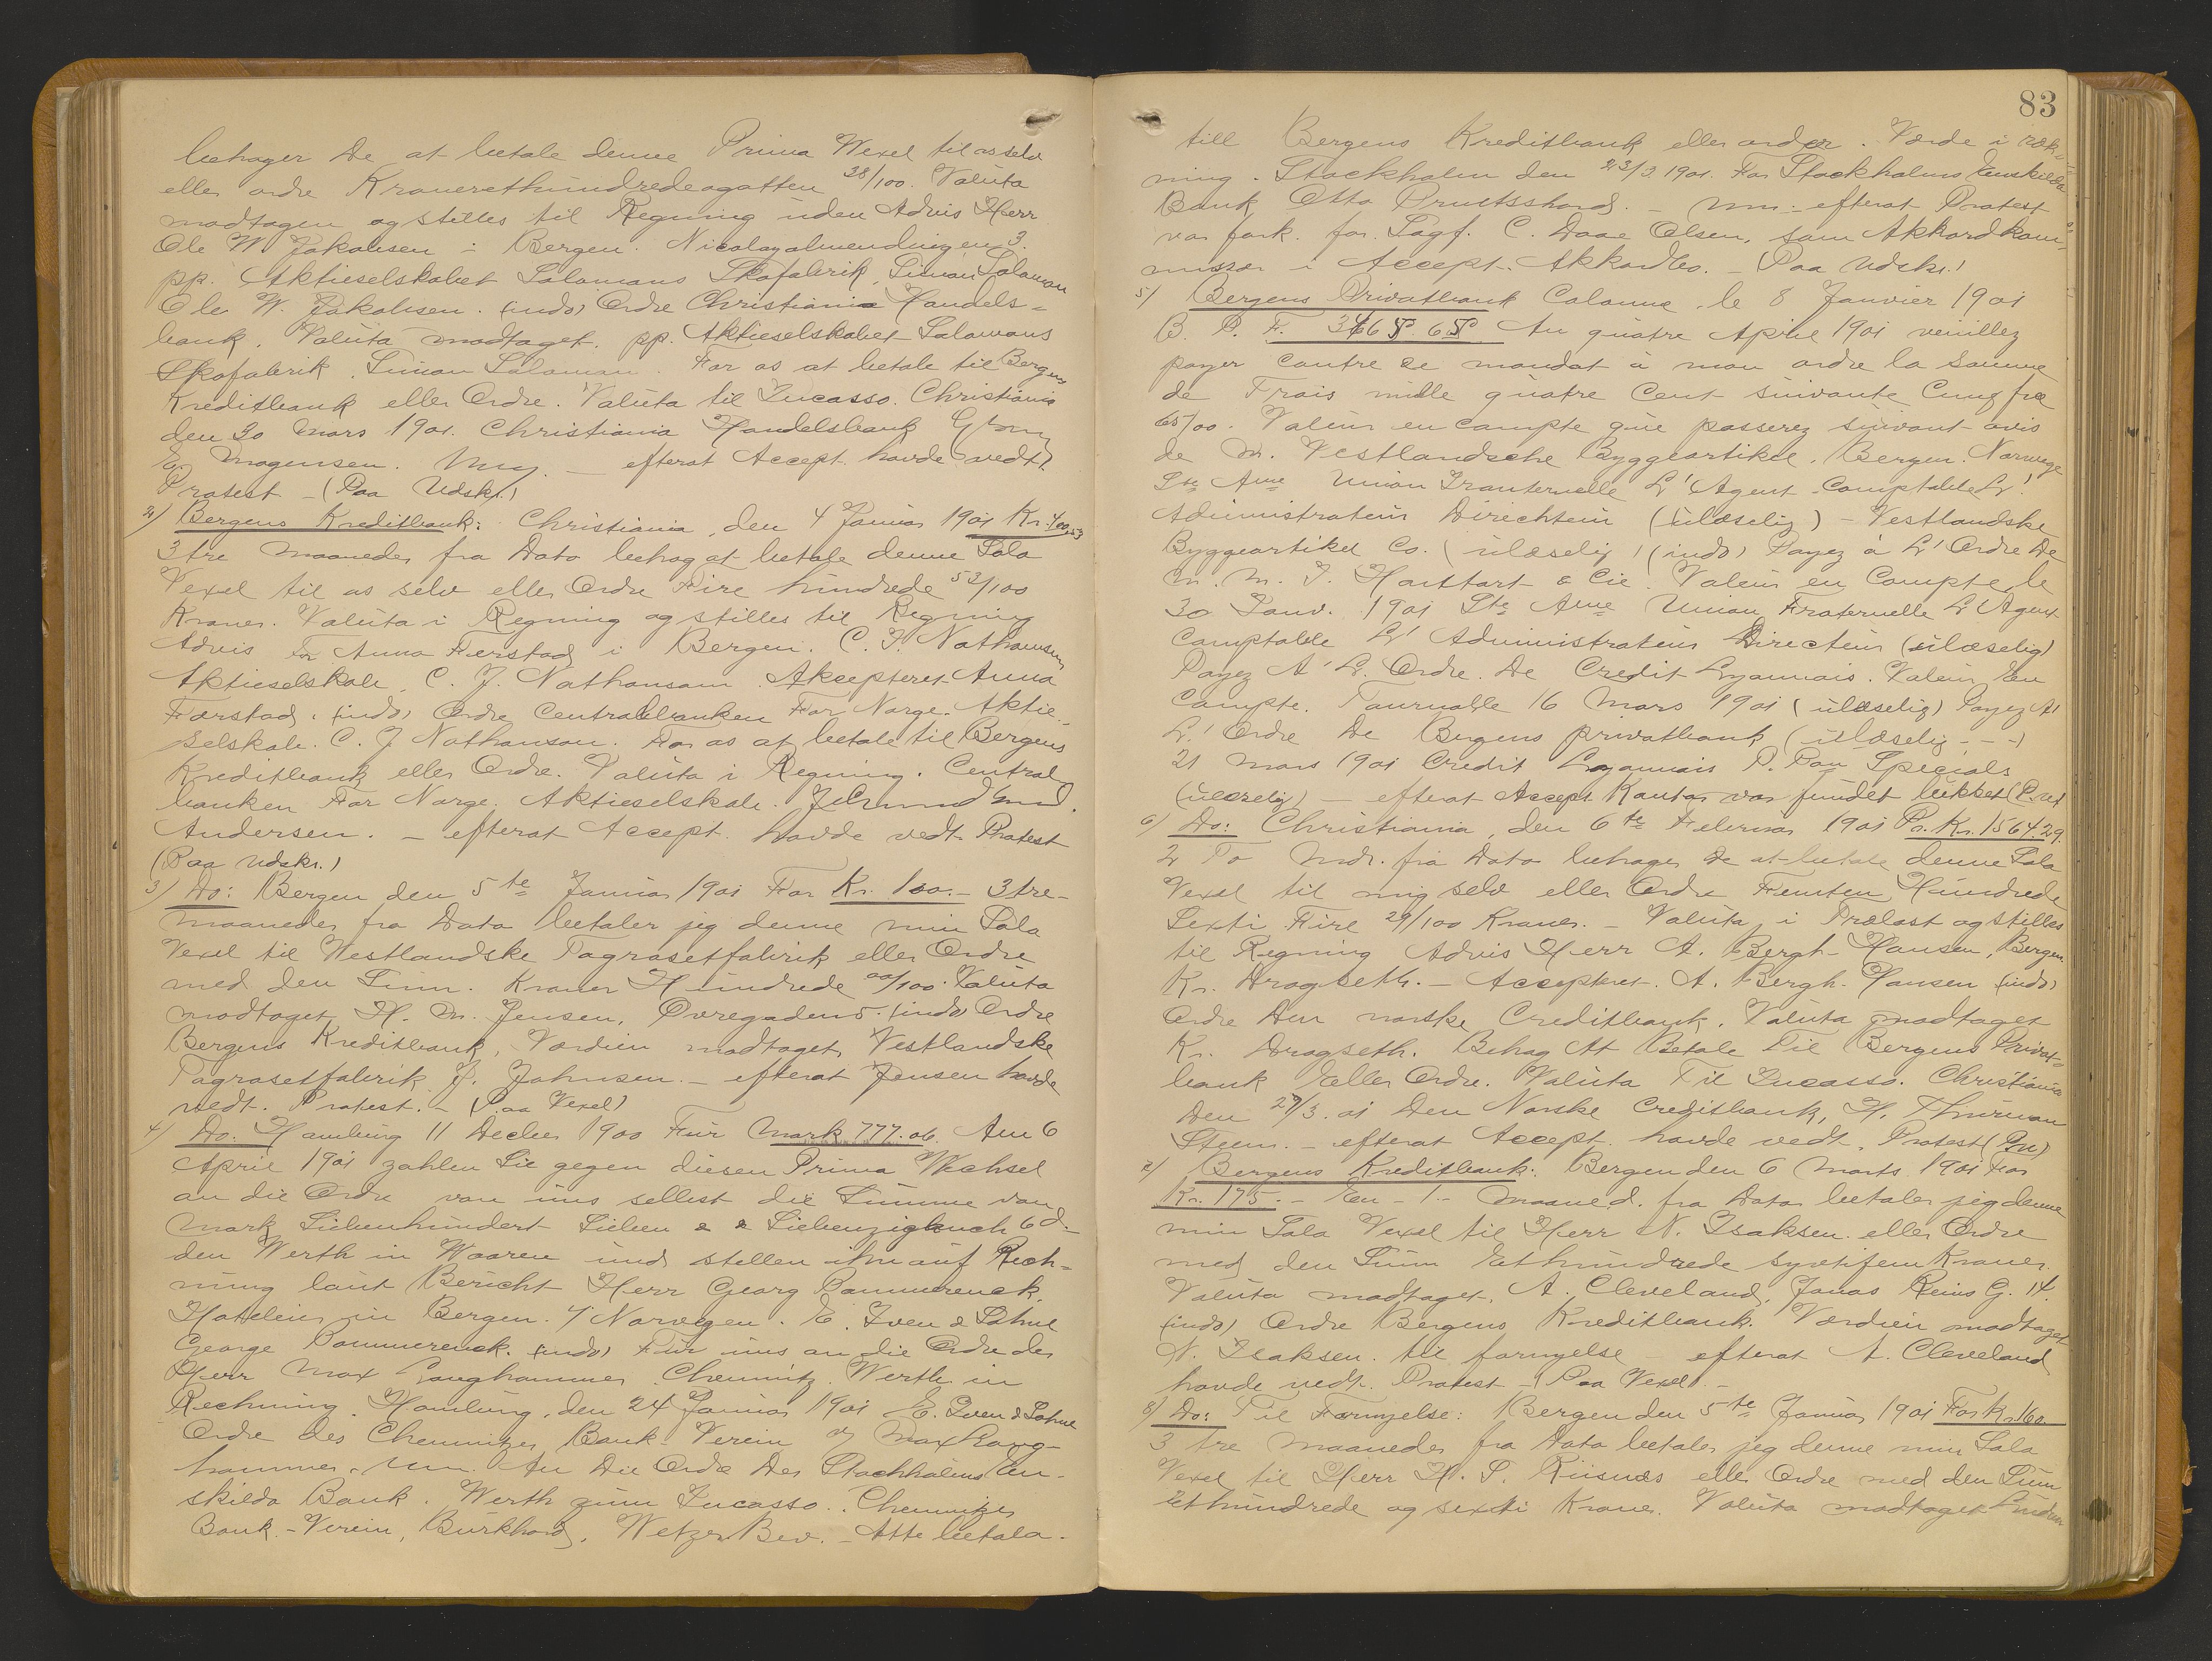 behager De at betale denne Prima Wexel til os selv
eller ordre Kronerethundredeogatten 28/100. Valuta
modtagen og stilles til Regning uden Advis Herr
Ole W. Jakobsen i Bergen. Nicolayalmendingen 3.
pp. Aktieselskabet Salomons Skofabrik, Simon Salomon
Ole W. Jakobsen. (indo) Ordre Christiania Handels-
bank. Valuta modtaget. pp. Aktieselskabet Salomons
Skofabrik. Simon Salomon. For os at betale til Bergens
Kreditbank eller Ordre. Valuta til Incasso. Christiania
den 30 Mars 1901. Christiania Handelsbank
E. Mogensen. — efterat Accept. havde vedt.
Protest — (Paa Udskr.)
2) Bergens Kreditbank: Christiania, den 4 Januar 1901 Kr. 400.53
3 tre Maaneder fra Dato behag at betale denne Sola
Vexel til os selv eller Ordre Fire hundrede 53/100
Kroner. Valuta i Regning og stilles til Regning
Advis Fr Anna Færstad i Bergen. C. J. Nathansens
Aktieselskab. C. J. Nathanson. Akcepteret Anna
Færstad. (indo) Ordre Centralbanken For Norge. Aktie-
selskab. C. J Nathanson. For os at betale til Bergens
Kreditbank eller Ordre. Valuta i Regning. Central
banken For Norge. Aktieselskab.
Andersen. — efterat Accept. havde vedt. Protest
(Paa Udskr.)
3) Do: Bergen den 5te Januar 1901 For Kr. 100.— 3 tre-
maaneder fra Dato betaler jeg denne min Sola
Vexel til Vestlandske Tograsetfabrik eller Ordre
med den Sum. Kroner Hundrede 00/100. Valuta
modtaget H. M. Jensen, Øvregaden 5. (indo) Ordre
Bergens Kreditbank, Værdien modtaget, Vestlandske
Tograsetfabrik J. Johnsen. — efterat Jensen havde
vedt. Protest. — (Paa Vexel)
4) Do. Hamburg 11 Decber 1900 Für Mark 777.06. Am 6
April 1901 zahlen Sie gegen diesen Prima Wechsel
an die Ordre von uns selbst die Summe von
Mark Siebenhundert Sieben & Siebenzig 6 d.
den Werth in Waaren und stellen ihn auf Rech-
nung laut Bericht Herr Georg Pommerenck,
Hatelier in Bergen. i/ Norwegen. E. Iven & Söhne
George Pommerenck. (indo) Für uns an die Ordre des
Herr Max Langhammer Chemnitz. Werth in
Rechnung. Hamburg, den 24 Januar 1901 E. Iven & Söhne
Ordre des Chemnitzer Bank-Verein Max Lang-
hammer. An Die Ordre Der Stockholms En-
skilda Bank. Werth zum Incasso. Chemnitzer
Bank-Verein, Burkhard, Wetzer Bev. — Atte betala.
83
till Bergens Kreditbank eller order. Værde i ræk-
ning. Stockholm den 23/3 1901. For Stockholms Enskilda
Bank Otto — efterat Protest
var fork. for. Sagf. C. Daae Olsen, som Akkordkom-
missær i Accept. Akkordbo. — (Paa Udskr.)
5) Bergens Privatbank Colonne, le 8 Janvier 1901
B. P. F. 3465.65 Au quatre April 1901 veuillez
payer contre ce mandat à mon ordre la Somme
de Trois mille quatre Cent suivante Cinq frc
65/00. Valeur en compte que passerez suivant avis
de M. Vestlandsche Byggeartikel. Bergen. Norwege
Ste Ame Union Franternelle L'Agent Comptable L'
Administrateur Directeur (ulæselig) — Vestlandske
Byggeartikel Co. (ulæselig) (indo) Payez à L'Ordre De
M. M. J. Hottart & Cie. Valeur en Compte, le
30 Janv. 1901 Ste Ame Union Fraternelle L'Agent
Comptable L'Administrateur Directeur (ulæselig)
Payez A' L'. Ordre. De Credit Lyonnais. Valeur En
Compte. 16 Mars 1901 (ulæselig) Payez A'
L'Ordre De Bergens privatbank (ulæselig - - -)
21 Mars 1901 Credit Lyonnais P. Pou Specials
(ulæselig) — efterat Accept Kontor var fundet lukket (P. ud
6) Do: Christiania, den 6te Februar 1901 Pr. Kr. 1564.29.
2 To Mdr. fra Dato behager De at betale denne Sola
Vexel til mig selv eller Ordre Femten Hundrede
Sexti Fire 29/100 Kroner. — Valuta i Trælast og stilles
til Regning Advis Herr A. Bergh-Hansen, Bergen.
Kr. Dragseth. — Accepteret. A. Bergh. Hansen (indo)
Ordre Den norske Creditbank. Valuta modtaget
Kr. Dragseth. Behag At Betale Til Bergens Privat-
bank Eller Ordre. Valuta Til Incasso. Christiania
Den 29/3. 01 Den Norske Creditbank, H. Thurman
Steen. — efterat Accept. havde vedt. Protest
Bergens Kreditbank: Bergen den 6 Marts 1901 For
Kr. 175. — En — 1 — Maaned. fra Dato betaler jeg denne
min Sola Vexel til Herr N. Isaksen eller Ordre
med den Sum Ethundrede syvtifem Kroner.
Valuta modtaget. A. Cleveland, Jonas Reins G. 14.
(indo) Ordre Bergens Kreditbank. Værdien modtaget
N. Isaksen. til fornyelse efterat A. Cleveland
havde vedt. Protest — Paa Vexel. —
8) Do: Til Fornyelse: Bergen den 5te Januar 1901 For Kr. 160
3 tre Maaneder fra Dato betaler jeg denne min Sola
Vexel til Herr H. S. Riisnæs eller Ordre med den Sum
Ethundrede og sexti Kroner. Valuta modtaget